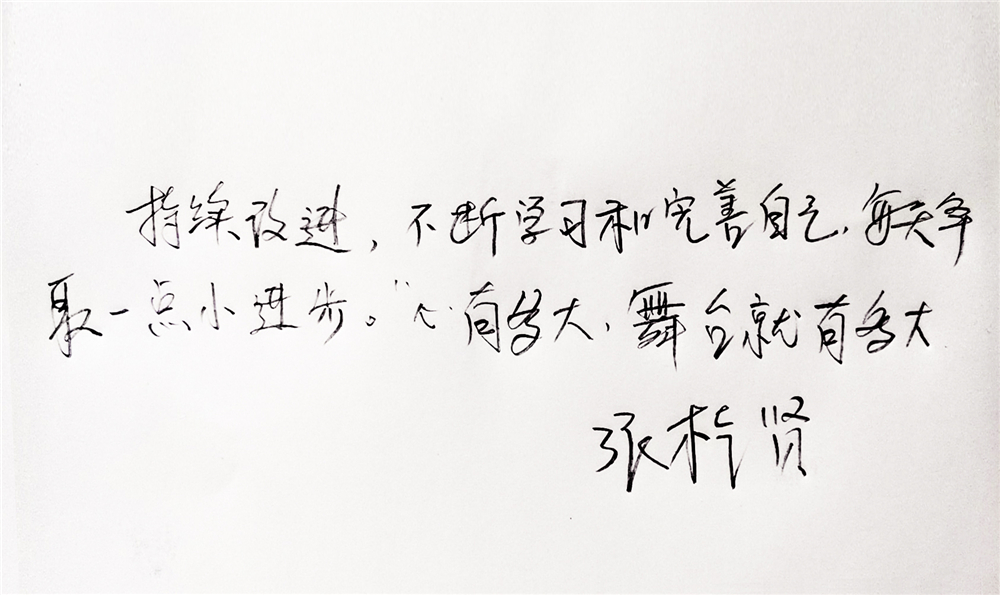 持续改进，不断学习和完善自己，每天争
取一点小进步。“心有多大，舞台就有多大
张贤